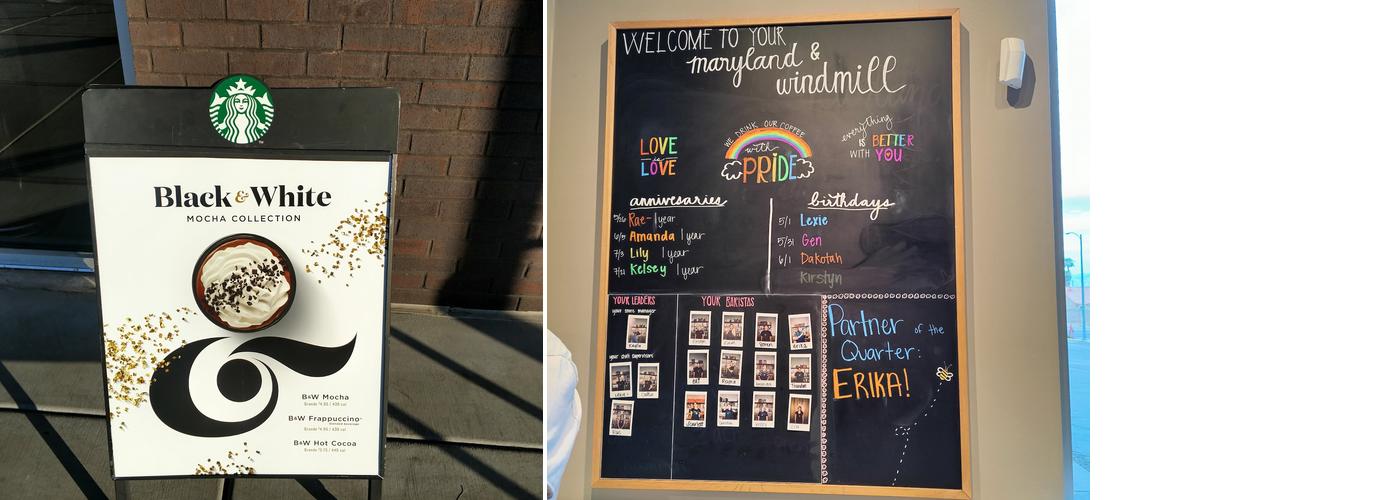 Black & White
MOCHA COLLECTION
B&W Mocha
B&W Frappuccino
B&W Hot Cocoa
WELCOME TO YOUR
maryland &
windmill
LOVE
is
LOVE
WE DRINK OUR COFFEE
with
PRIDE
everything
IS BETTER
WITH YOU
annivesaries
Rae - 1 year
6/5 Amanda 1 year
7/3 Lily 1 year
7/21 Kelsey 1 year
birthdays
5/1 Lexie
5/31 Gen
6/1 Dakotah
Kirstyn
YOUR LEADERS
your store manager
your shift supervisors
YOUR BARISTAS
Partner of the
Quarter:
ERIKA!